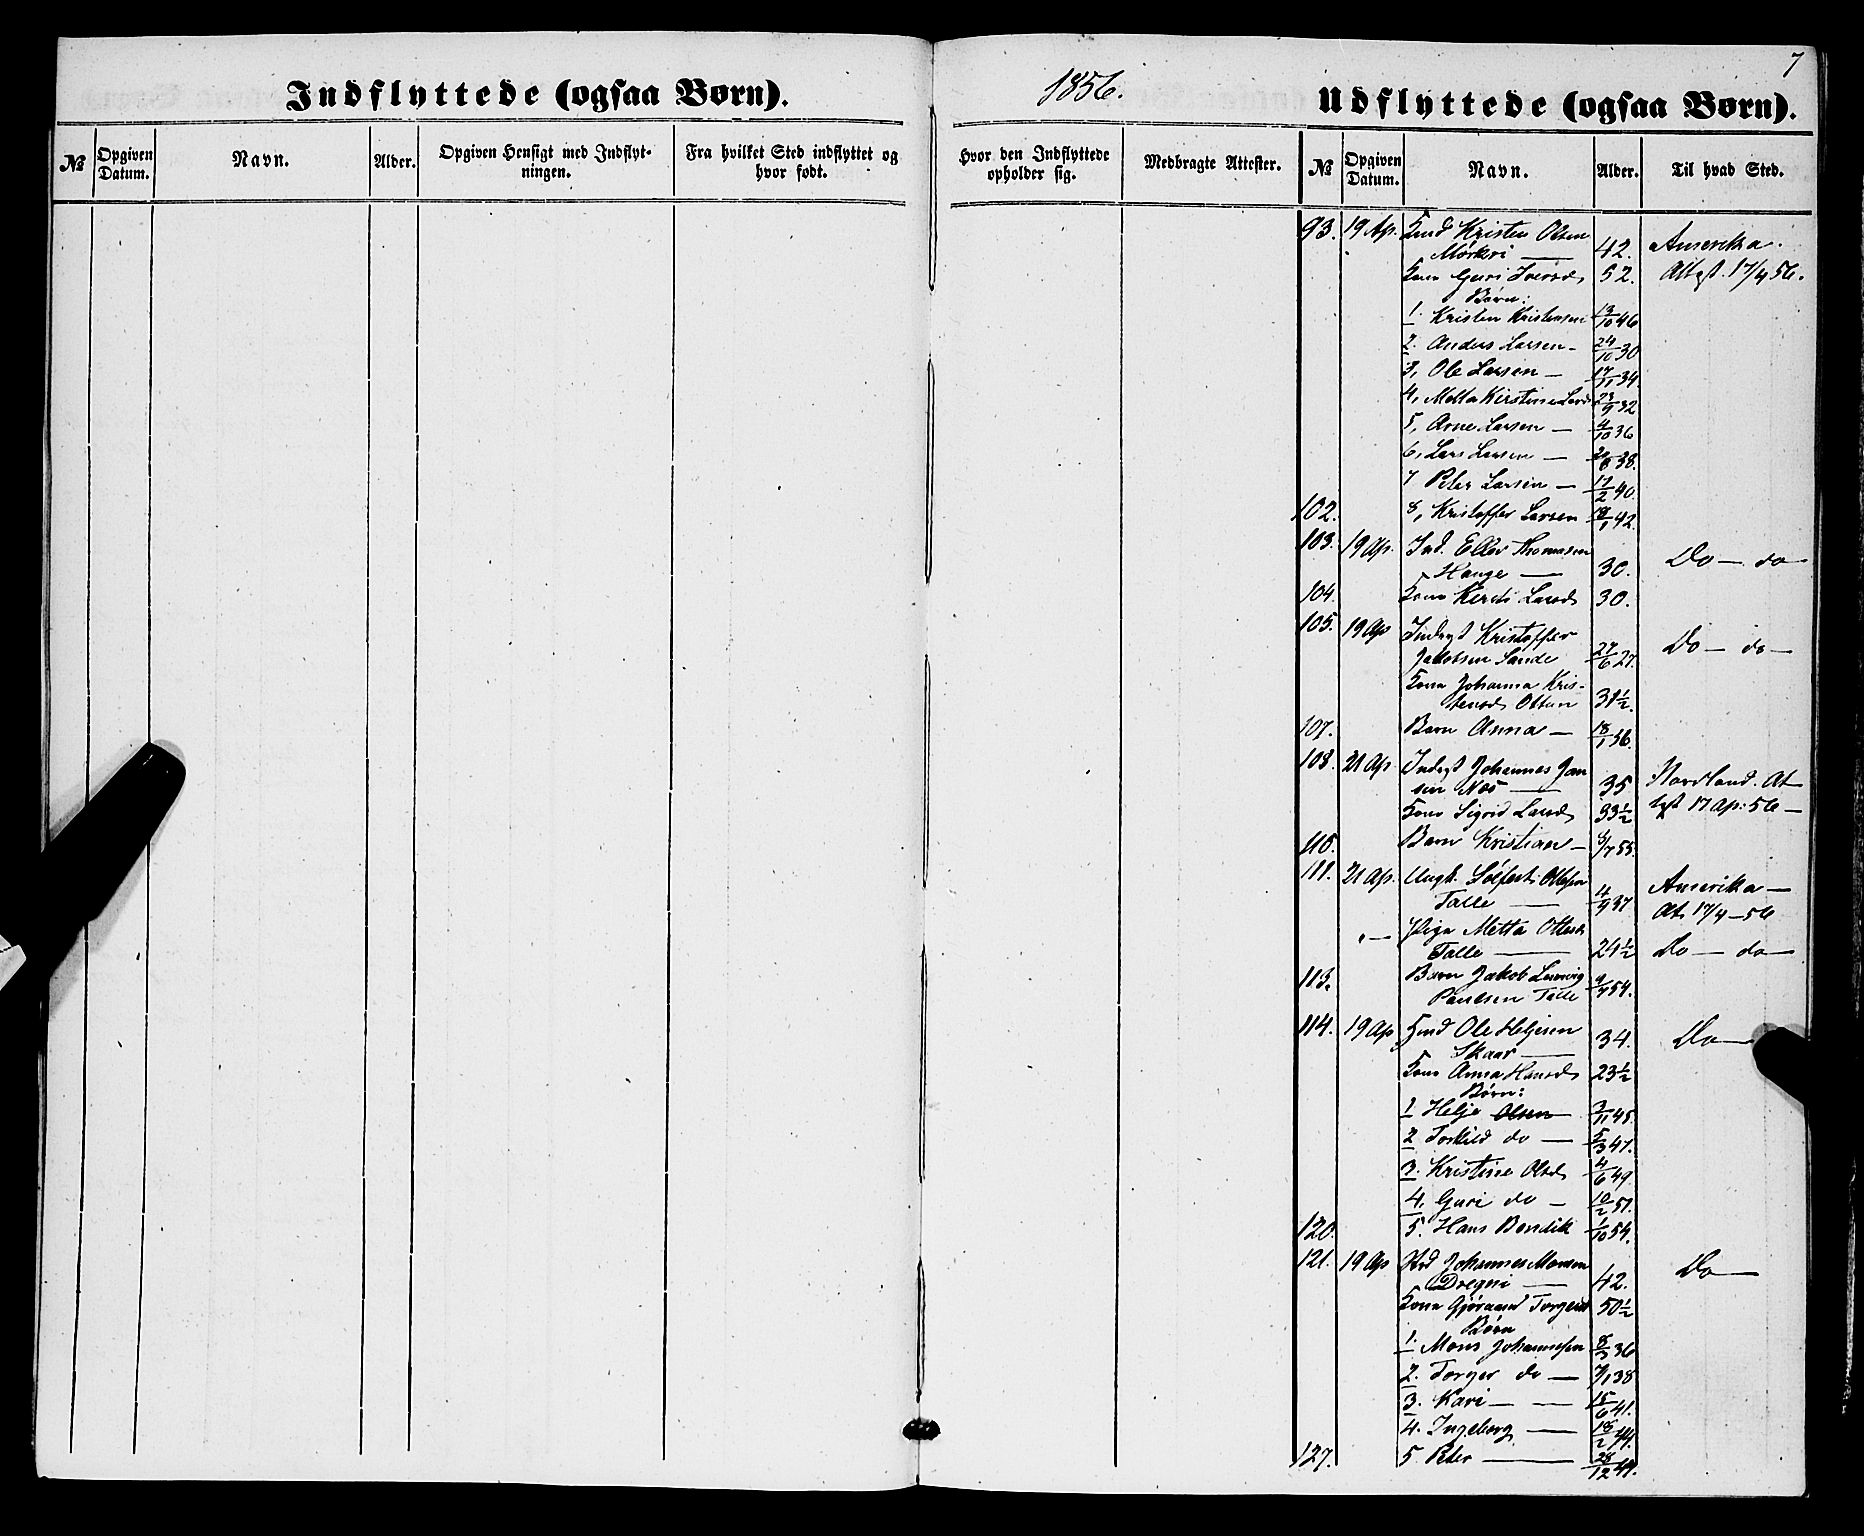 7
Indflyttede (ogsaa Børn).
1856.
Udflyttede (ogsaa Børn).
№
Opgiven Datum.
Navn.
Alder.
Opgiven Hensigt med Indflyt-
ningen.
Fra hvilket Sted indflyttet og
hvor født.
Hvor den Indflyttede
opholder sig.
Medbragte Attester.
№
Opgiven Datum.
Navn.
Alder.
Til hvad Sted.
93. 19 Ap. Kristen Olsen
Mørkri — 42. Amerika.
Kone Guri Iversd 52. Attest. 17/4 56.
Børn:
1. Kristen Kristensen 13/10 46
2. Anders Larsen - 24/10 30
3, Ole Larsen — 17/11 34.
4, Metta Kirstine Larsd 23/9 32
5, Arne Larsen — 4/10 36
6, Lars Larsen — 20/8 38.
7 Peter Larsen — 17/2 40.
102. 8, Kristoffer Larsen 18/1 42.
103. 19 Ap. Ind. Eller Thomasen
Hauge — 30. Do — do —
104. Kone Kersti Larsd 30.
105. 19 Ap Indgst Kristoffer
Jakobsen Sande 27/6 27. Do — do —
Kona Johanna Kris-
tensd Ottum 31½.
107. Barn Anna — 18/1 56.
108. 21 Ap Indgst Johannes Jan
sen Næs — 35 Nordland. At
Kone Sigrid Larsd 33½ tst 17 Ap: 56 —
110. Barn Kristian — 8/7 55.
111. 21 Ap. Ungk. Sølfest Ottesen
Talle — 4/9 37 Amerika —
At. 17/4 — 56
" — Pige Metta Ottesd
Talle — 24½ Do — do —
113. Barn Jakob Ludvig
Paulsen Talle 9/7 54.
114. 19 Ap Ole Heljesen
Skaar — 34. Do —
Kone Anna Hansd 23½
Børn:
1 Helje Olsen — 3/11 45.
2 Torkild do — 5/3 47.
3. Kristine Olsd 4/6 49.
4. Guri do - 10/2 51.
120. 5. Hans Bendik 1/10 54.
121. 19 Ap Johannes Monsen
Dregni — 42. Do —
Kona Gjøraand Torgersd 50½
Børn
1. Mons Johannesen 8/3 36
2. Torger do — 7/1 38
3. Kari — — 15/6 41.
4. Ingeborg — 18/2 44.
127. 5 Peter — 28/12 49.